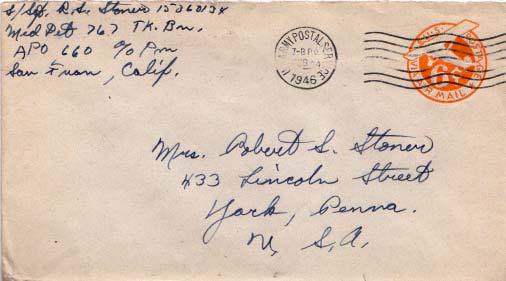 S/Sgt. R.S. Stoner
Med Det 767 TK. Bn.
APO 660 c/o Pm
San Fran, Calif.
ARMY POSTAL SER
1946
VIA AIR MAIL
6¢
Mrs. Robert S. Stoner
433 Lincoln Street
York, Penna.
U, S, A,